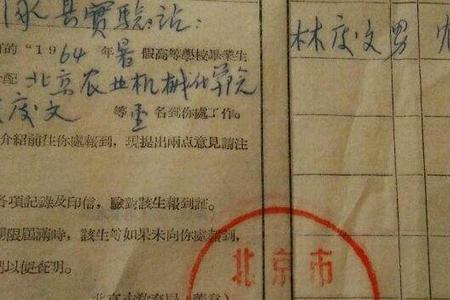 县實驗站：
的"1964年暑假高等學校畢業生
配北京农业机械化学院
度文 等壹名到你處工作。
介紹前往你處報到，現提出兩点意見請注
各項記錄及印信，驗對該生報到証。
期限屆滿時，該生等如果未向你處報到，
以便查明。
林度文 男
北京市